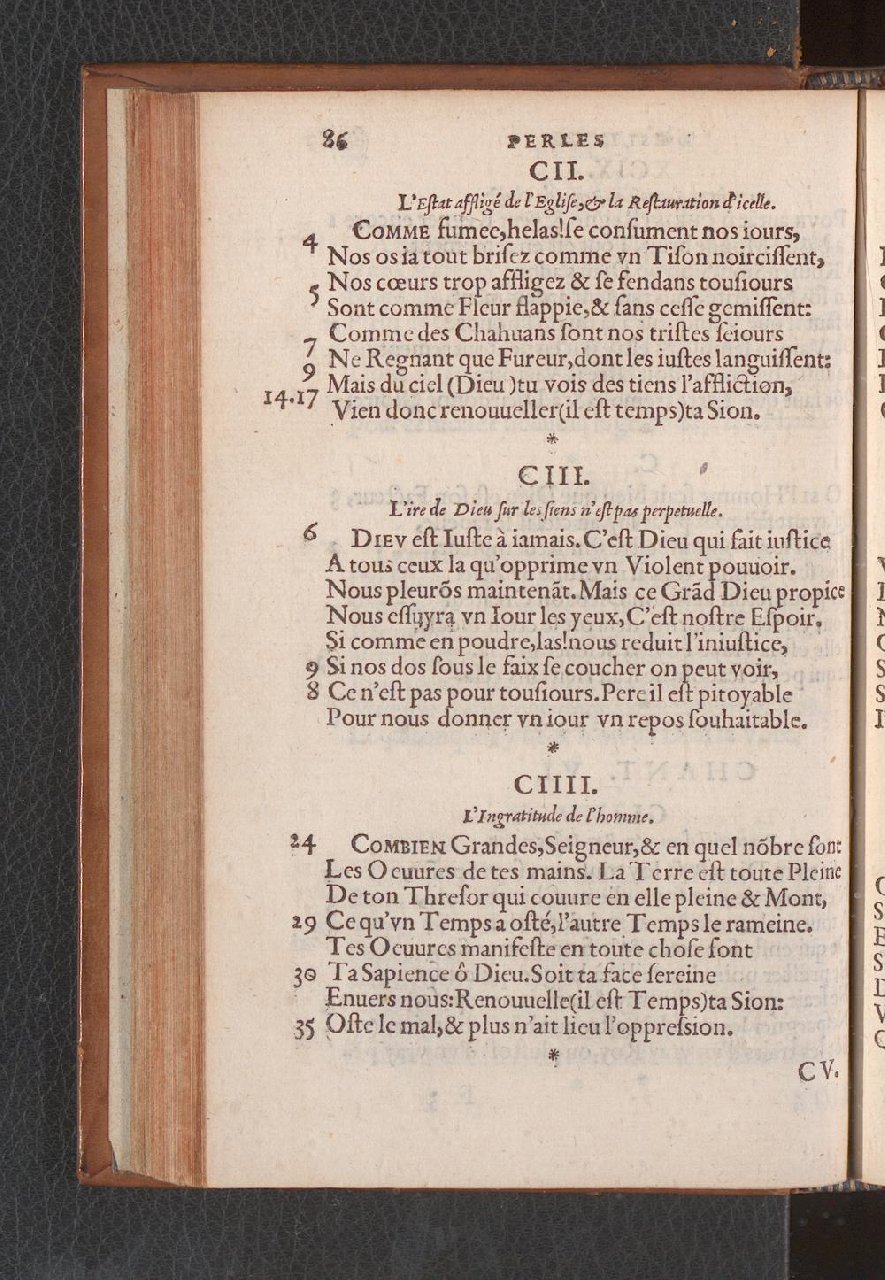 86 PERLES
CII.
L'Estat affligé de l'Eglise, & la Restauration d'icelle.
COMME fumee, helas! se consument nos iours,
4
Nos os ia tout brisez comme vn Tison noircissent,
Nos cœurs trop affligez & se fendans tousiours
5 Sont comme Fleur flappie, & sans cesse gemissent:
Comme des Chahuans sont nos tristes seiours
7
Ne Regnant que Fureur, dont les iustes languissent:
9
Mais du ciel (Dieu) tu vois des tiens l'affliction,
14.17
Vien donc renouueller (il est temps) ta Sion.
*
CIII.
L'ire de Dieu sur les siens n'est pas perpetuelle.
6 DIEV est Iuste à iamais. C'est Dieu qui fait iustice
A tous ceux la qu'opprime vn Violent pouuoir.
Nous pleurõs maintenãt. Mais ce Grãd Dieu propice
Nous essuyra vn Iour les yeux, C'est nostre Espoir.
Si comme en poudre, las! nous reduit l'iniustice,
9 Si nos dos sous le faix se coucher on peut voir,
8 Ce n'est pas pour tousiours. Pere il est pitoyable
Pour nous donner vn iour vn repos souhaitable.
*
CIIII.
L'Ingratitude de l'homme.
24 COMBIEN Grandes, Seigneur, & en quel nõbre sont
Les Oeuures de tes mains. La Terre est toute Pleine
De ton Thresor qui couure en elle pleine & Mont,
29 Ce qu'vn Temps a osté, l'autre Temps le rameine.
Tes Oeuures manifeste en toute chose font
30 Ta Sapience ô Dieu. Soit ta face sereine
Enuers nous: Renouuelle (il est Temps) ta Sion:
35 Oste le mal, & plus n'ait lieu l'oppression.
*
CV.